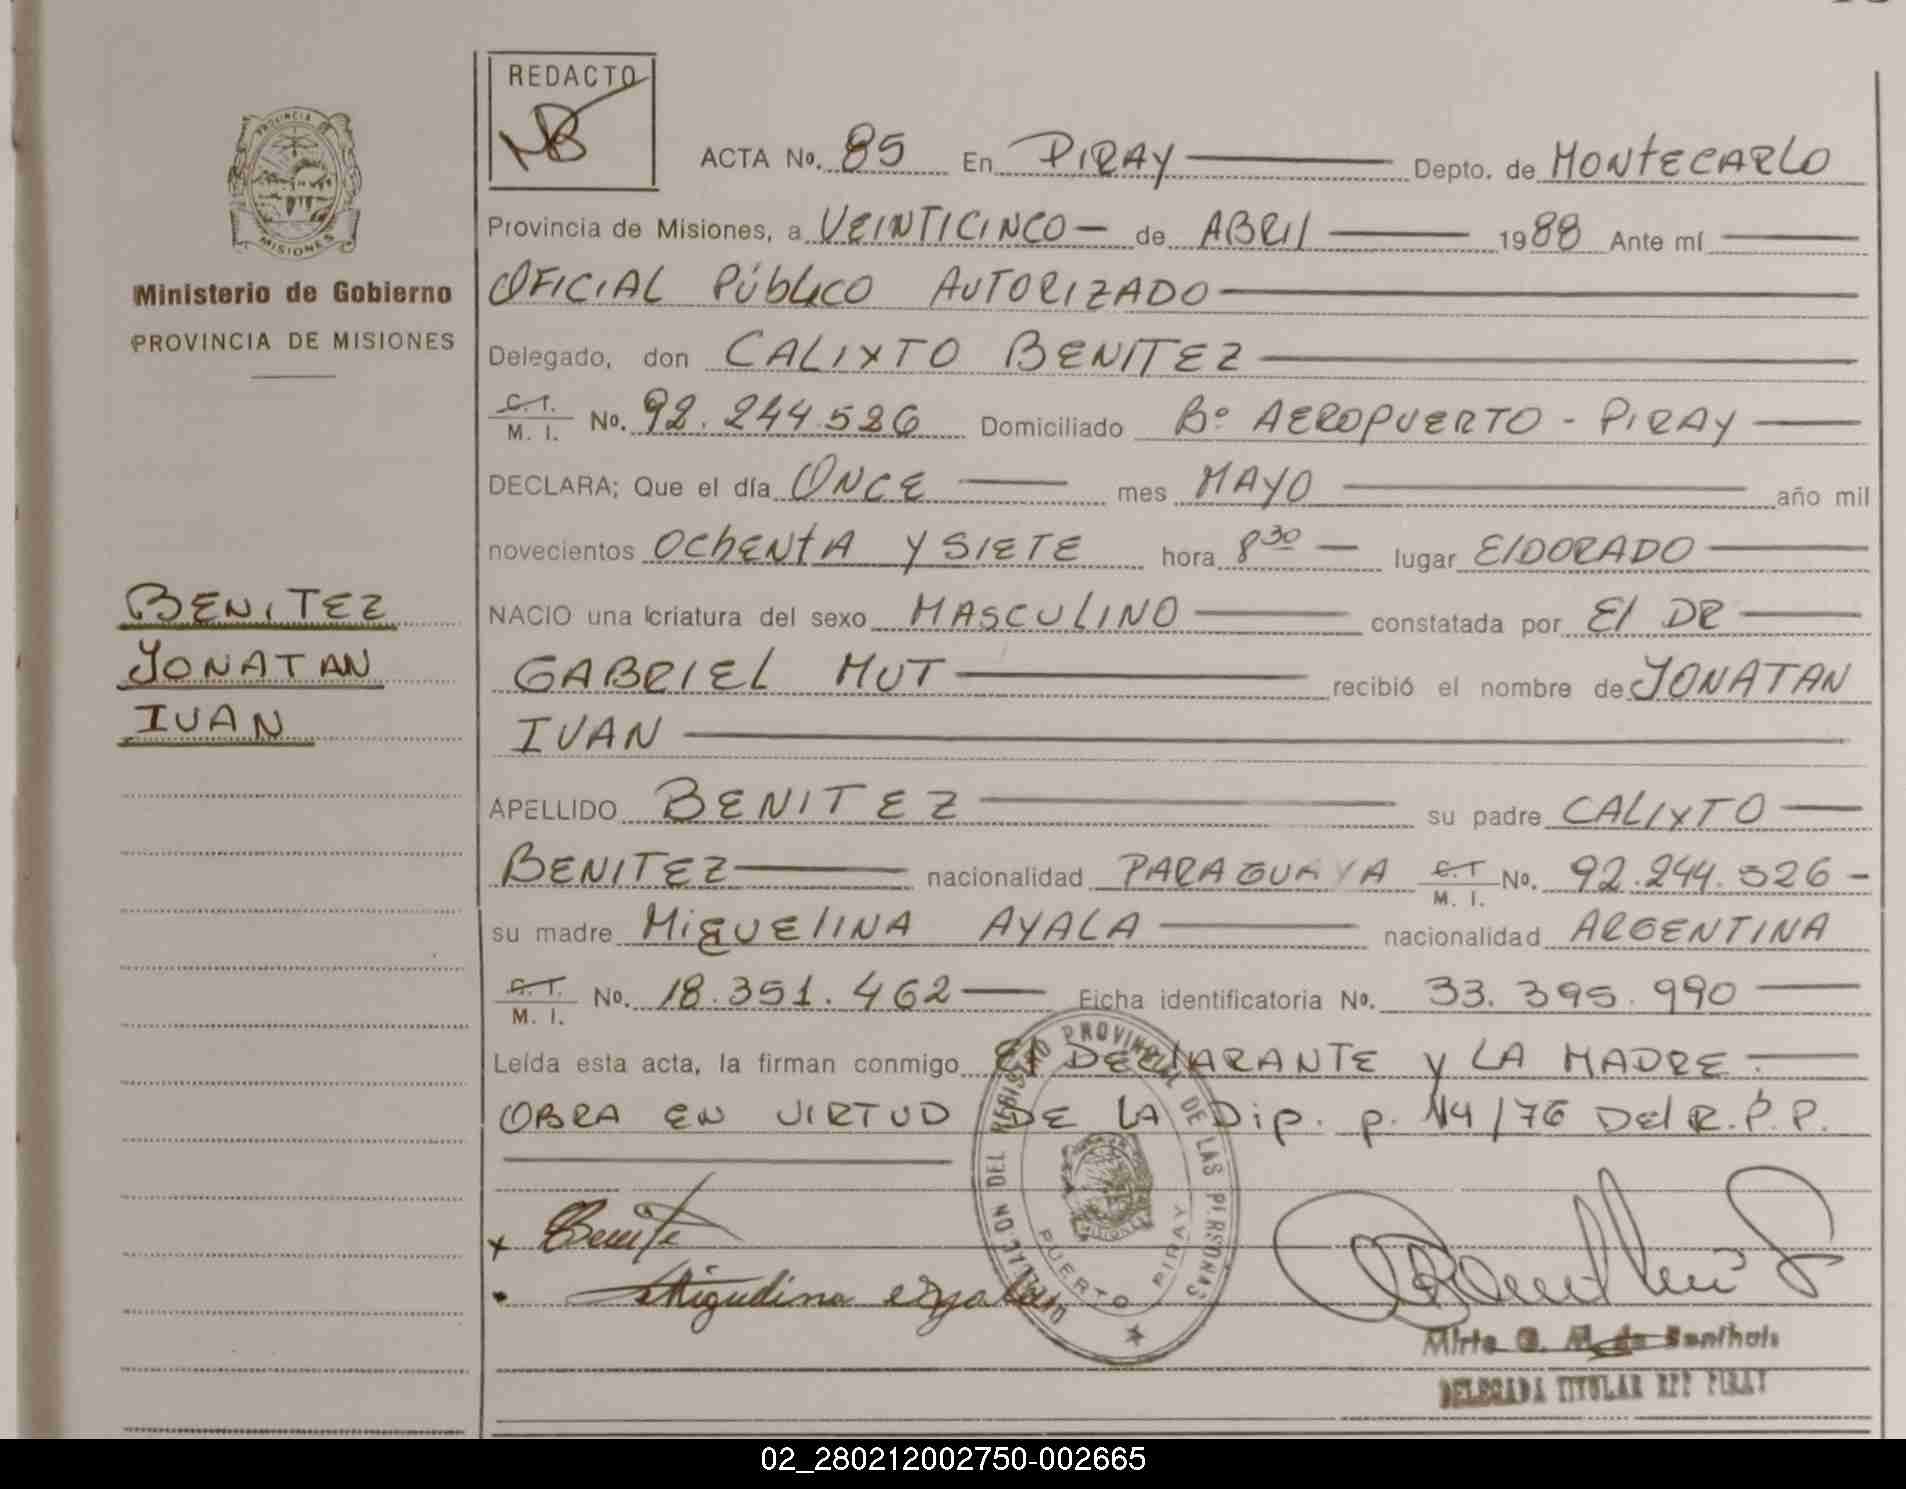 REDACTO
ACTA No. 85 En PIRAY Depto. de MONTECARLO
Provincia de Misiones, a VEINTICINCO de ABRIL 1988 Ante mí
OFICIAL PÚBLICO AUTORIZADO
Delegado, don CALIXTO BENITEZ
C. I. M. I. No. 92.244.526 Domiciliado Bº AEROPUERTO - PIRAY
DECLARA; Que el día ONCE mes MAYO año mil
novecientos OCHENTA Y SIETE hora 8 30 lugar ElDORADO
NACIO una criatura del sexo MASCULINO constatada por El DR
GABRIEL MUT recibió el nombre de JONATAN
IVAN
APELLIDO BENITEZ su padre CALIXTO
BENITEZ nacionalidad PARAGUAYA C. I. M. I. No. 92.244.526 -
su madre MIGUElINA AYALA nacionalidad ARGENTINA
C. I. M. I. No. 18.351.462 Ficha identificatoria No. 33.395.990
Leída esta acta, la firman conmigo El DEClARANTE y LA MADRE
OBRA EN VIRTUD DE LA Dip. p. 114/76 Del R.P.P.
PROVINCIA DE
MISIONES
Ministerio de Gobierno
PROVINCIA DE MISIONES
BENITEZ
JONATAN
IVAN
DELEGACION DEL REGISTRO PROVINCIAL DE LAS PERSONAS
PUERTO PIRAY
Miguelina Ayala
Mirta
DELEGADA TITULAR RPP PIRAY
02_280212002750-002665